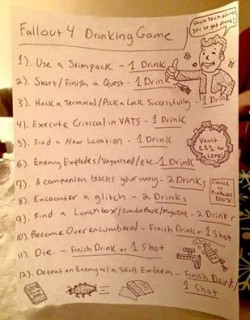 Fallout 4 Drinking Game
1). Use a Stimpack - 1 Drink
2). Start/Finish a Quest - 1 Drink
3). Hack a Terminal/Pick a Lock Successfully - 1 Drink
4). Execute Critical in VATS - 1 Drink
5). Find a New Location - 1 Drink
6). Enemy Explodes/Vaporised/etc - 1 Drink
7). A companion blocks your way - 2 Drinks
8). Encounter a glitch - 2 Drinks
9). Find a Lunchbox/
10). Become Overencumbered - Finish Drink or 1 Shot
11). Die - Finish Drink or 1 Shot
12). Defeat an Enemy w/ a Skull Emblem - Finish Drink/
1 Shot